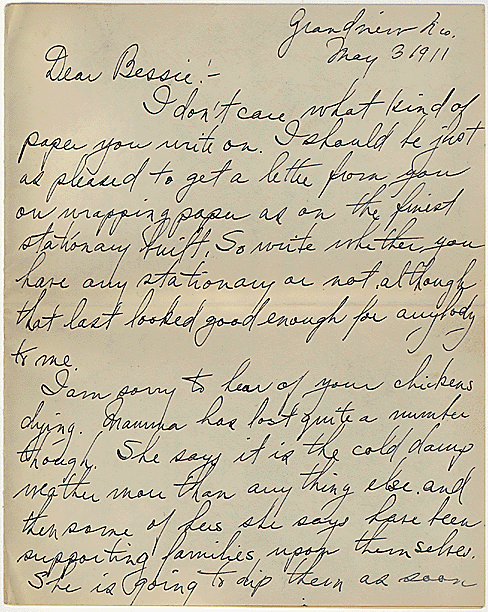 Grandview Mo.
May 3 1911
Dear Bessie:-
I don't care what kind of
paper you write on. I should be just
as pleased to get a letter from you
on wrapping paper as on the finest
stationary built. So write whether you
have any stationary or not, although
that last looked good enough for anybody
to me.
I am sorry to hear of your chickens
dying. Mamma has lost quite a number
though. She says it is the cold damp
weather more than any thing else and
then some of hers she says have been
supporting families upon themselves.
She is going to dip them as soon